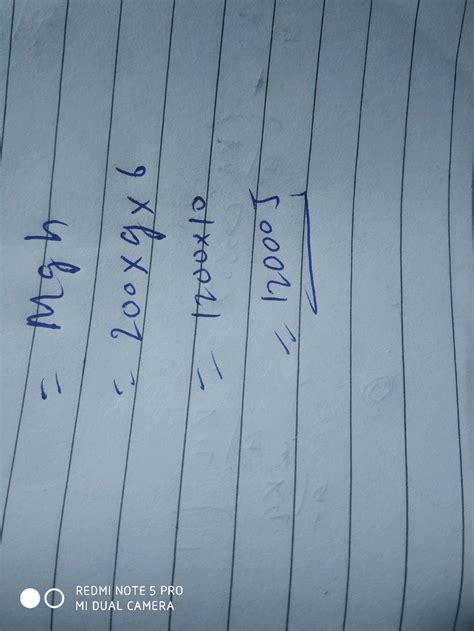 = Mgh
= 200 x g x 6
= 1200x10
= 12000 J
REDMI NOTE 5 PRO
MI DUAL CAMERA